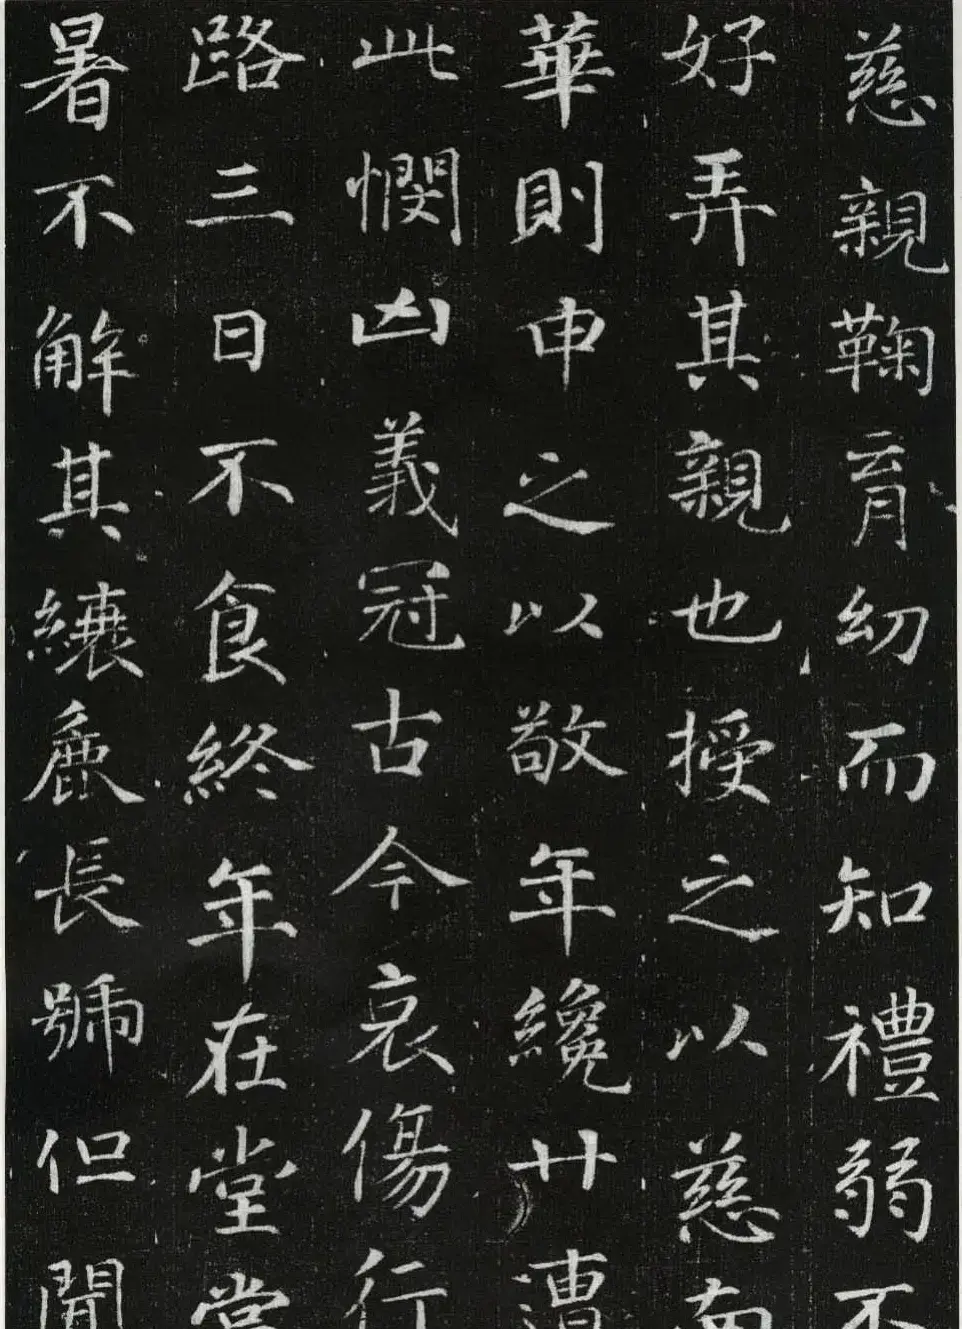 慈親鞠育幼而知禮弱不
好弄其親也授之以慈南
華則申之以敬年纔廿遭
此憫凶義冠古今哀傷行
路三日不食終年在堂堂
暑不解其縗麁長號但聞